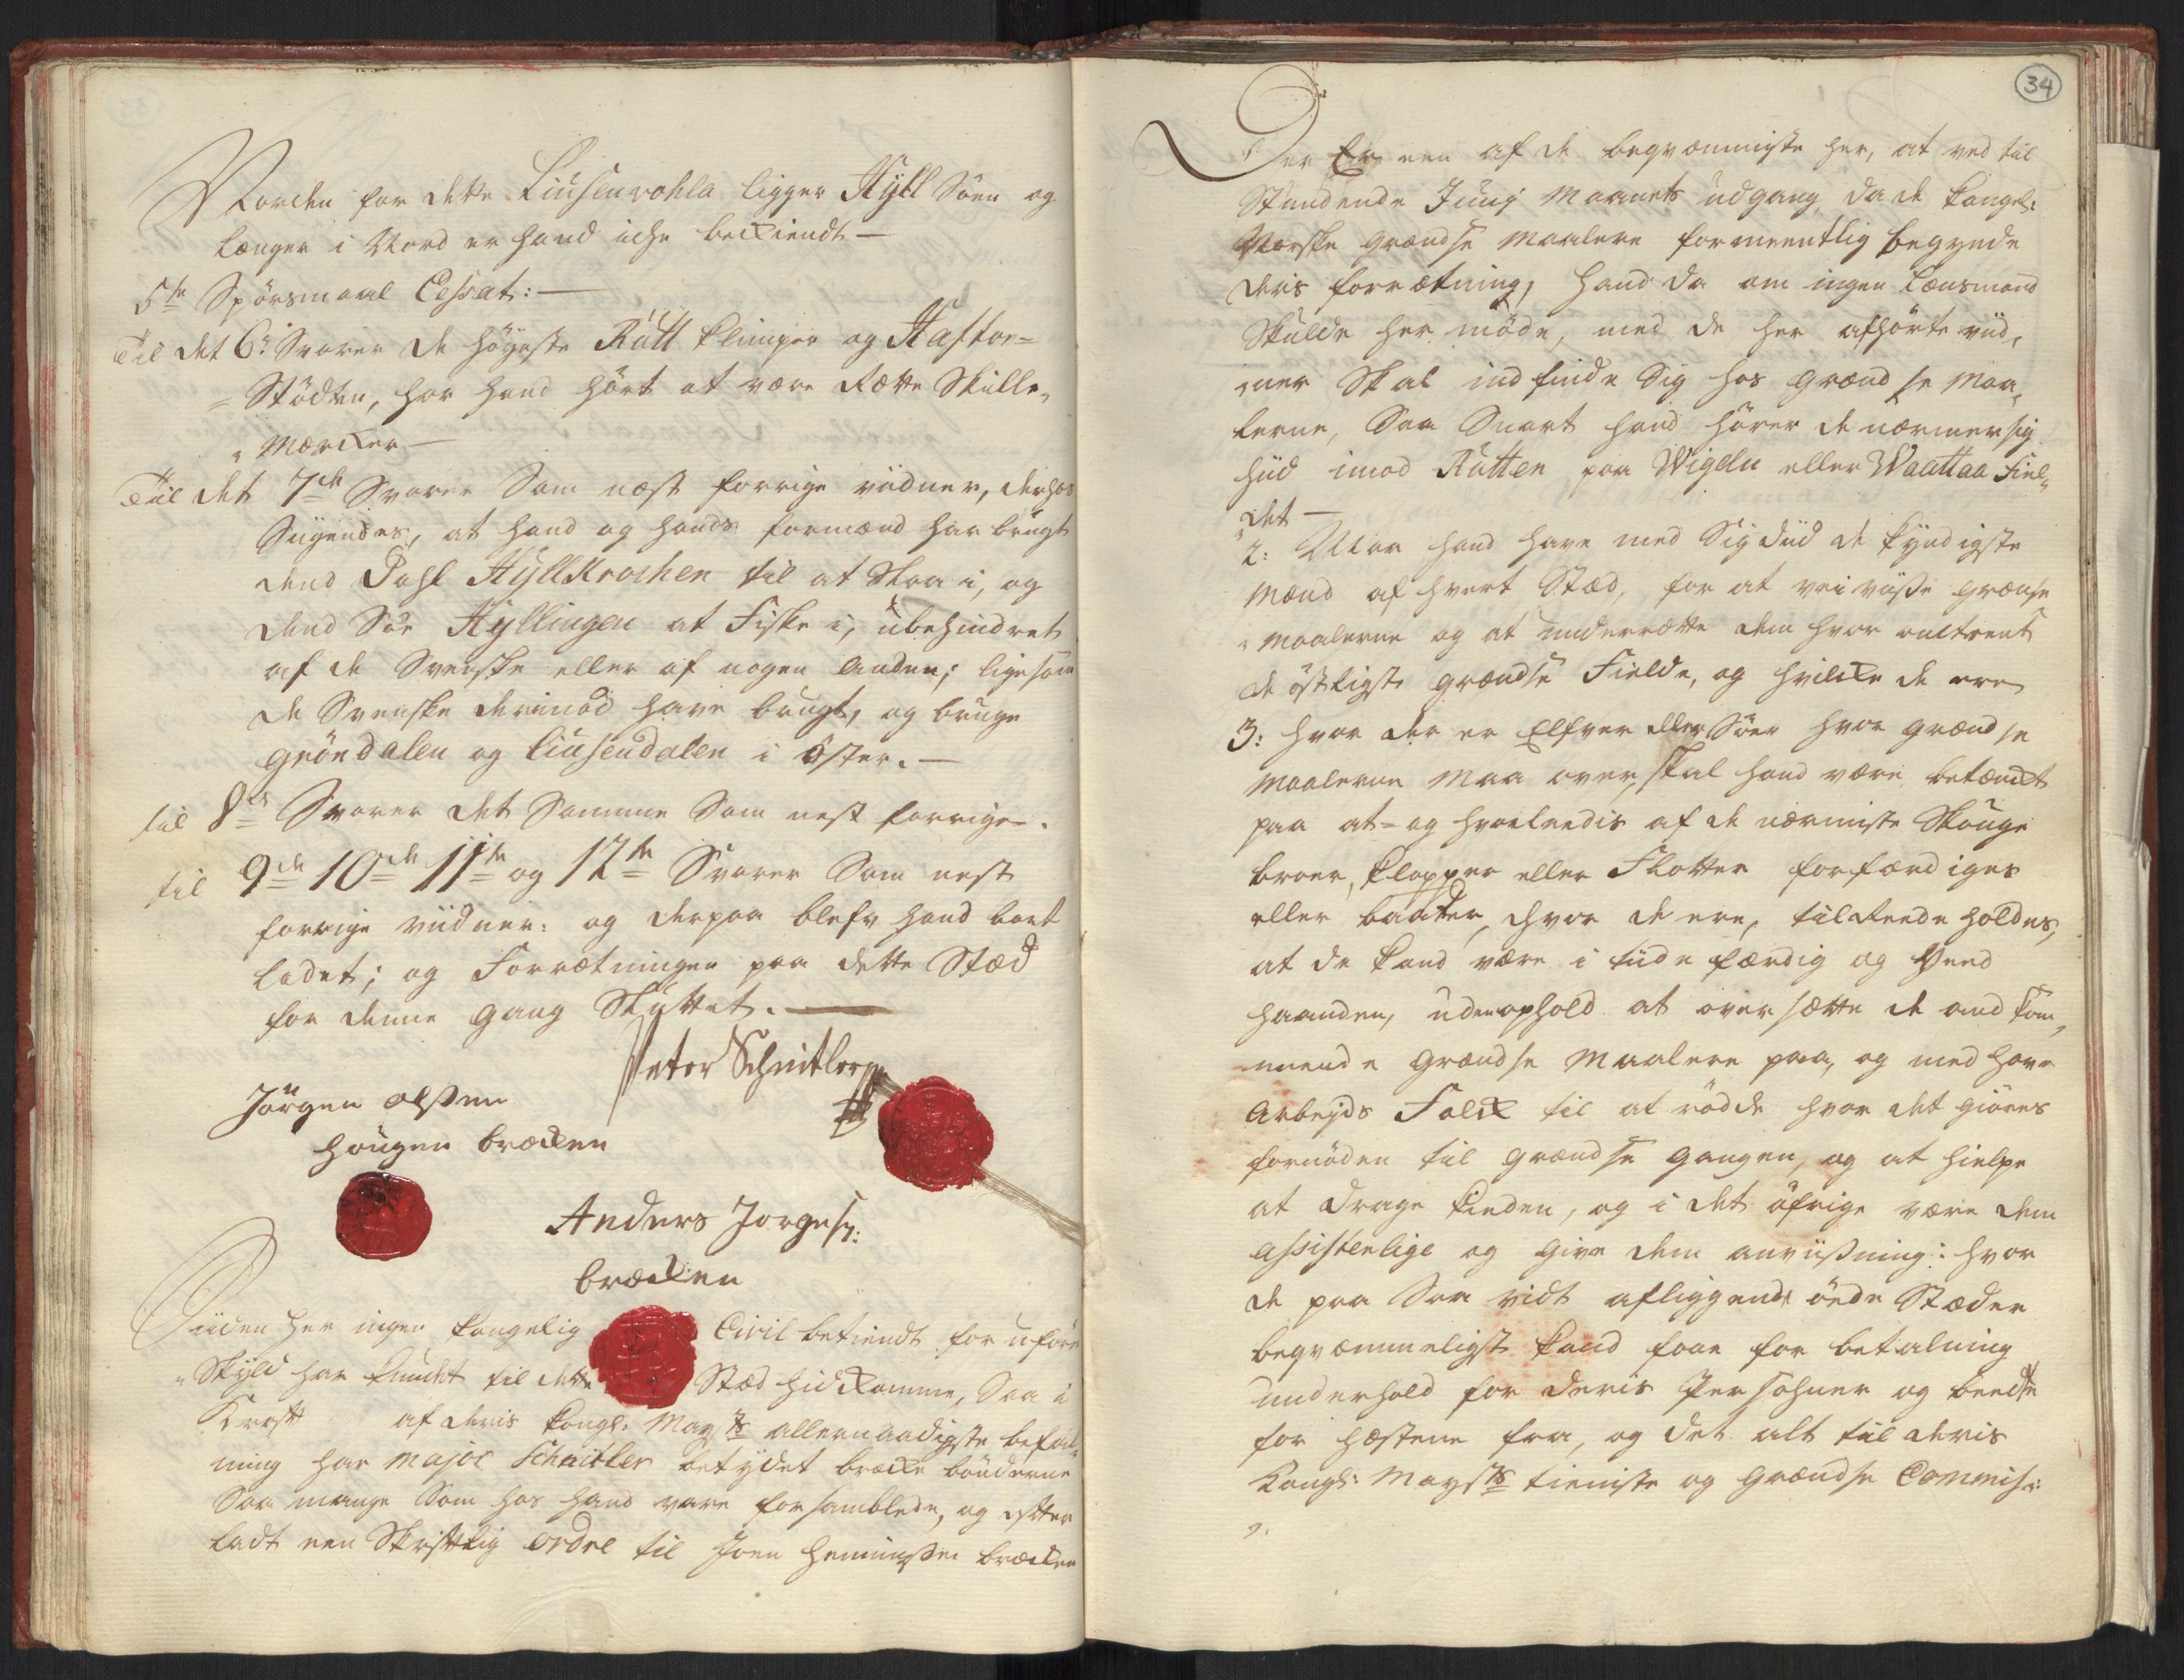 Norden for dette Liusenvohla ligger Hyll Söen og
længer i Nord er hand iche beckiendt —
5te Spörsmaal Cessat: —
Til det 6: Svarer de höyeste Rutt Klimper og Hastor=
=Stödten, har hand hört at være Rætte Skille„
„Mærcker —
Til det 7de Svarer Som næst forrige viidner, derhos
Siigendes, at hand og hands formænd har brugt
dend Dahl HyllKrochen til at Slaa i, og
dend Söe Hyllingen at Fiske i, ubehindret
af de Svenske eller af nogen Anden; ligesom
de Svenske derimod have brugt, og bruge
Gröndalen og Liusendalen i Öster. —
til 8de Svarer det Samme Som nest forrige.
til 9de 10de 11te og 12te Svarer Som nest
forrige viidner: og derpaa blefv hand bort
ladet; og Forrætningen paa dette Stæd
for denne gang Sluttet. —
Peter Schnitler
Jörgen olssen
hougen bræcken
Anders Jorgens:
bræcken
Siiden her ingen Kongelig Civil betiendt for uföre
„Skyld har kundet til dette Stæd hidkomme, Saa i
Kraft af deris Kongl: Mayts allernaadigste befal„
ning har Major Schnitler betydet bræcke bönderne
Saa mange Som hos hand vare forsamblede, og efter
ladt een Skriftlig ordre til Joen Hemingsen bræcken
34
Der Er een af de beqvæmmigste her, at ved til
Stundende Junij Maanets udgang, da de Kongel:
Norske Grændse Maalere formeentlig begynde
deris forrætning, hand da om ingen Lænsmand
Skulde her möde, med de her afhörte viid„
„ner Skal indfinde Sig hos Grændse Maa„
lerne, Saa Snart hand hörer de nærmer sig
hiid imod Rutten paa Wigeln eller Waattaa Fiel„
„det —
2: Maa hand have med Sig diid de kyndigste
Mænd af hvert Stæd, for at vei viisse grændse
„Maalerne og at underrætte dem hvor omtrent
de östligste Grændse Fielde, og hvilcke de ere
3: hvor der er Elfver eller Söer hvor Grændse
Maalerne Maa over, skal hand være betænckt
paa at= og hvorledis af de nærmeste Skouge
broer, Klopper eller Flotter forfærdiges
eller baader, hvor de ere, tilReede holdes,
at de kand være i tiide færdig og Veed
haanden, uden ophold at over sætte de and kom„
mende Grændse Maalere paa, og med have
Arbejds Folck til at rödde hvor det giöres
fornöden til Grændse Gangen, og at hielpe
at drage Kieden, og i det öfrige være dem
assistenlige og Give dem anviisning: hvor
de paa Saa vidt afliggende öede Stæder
beqvæmmeligst kand faae for betalning
underhold for deris Persohner og beede
for hæstene fra, og det alt til deris
Kongl: Mayts tieniste og Grændse Commiss: